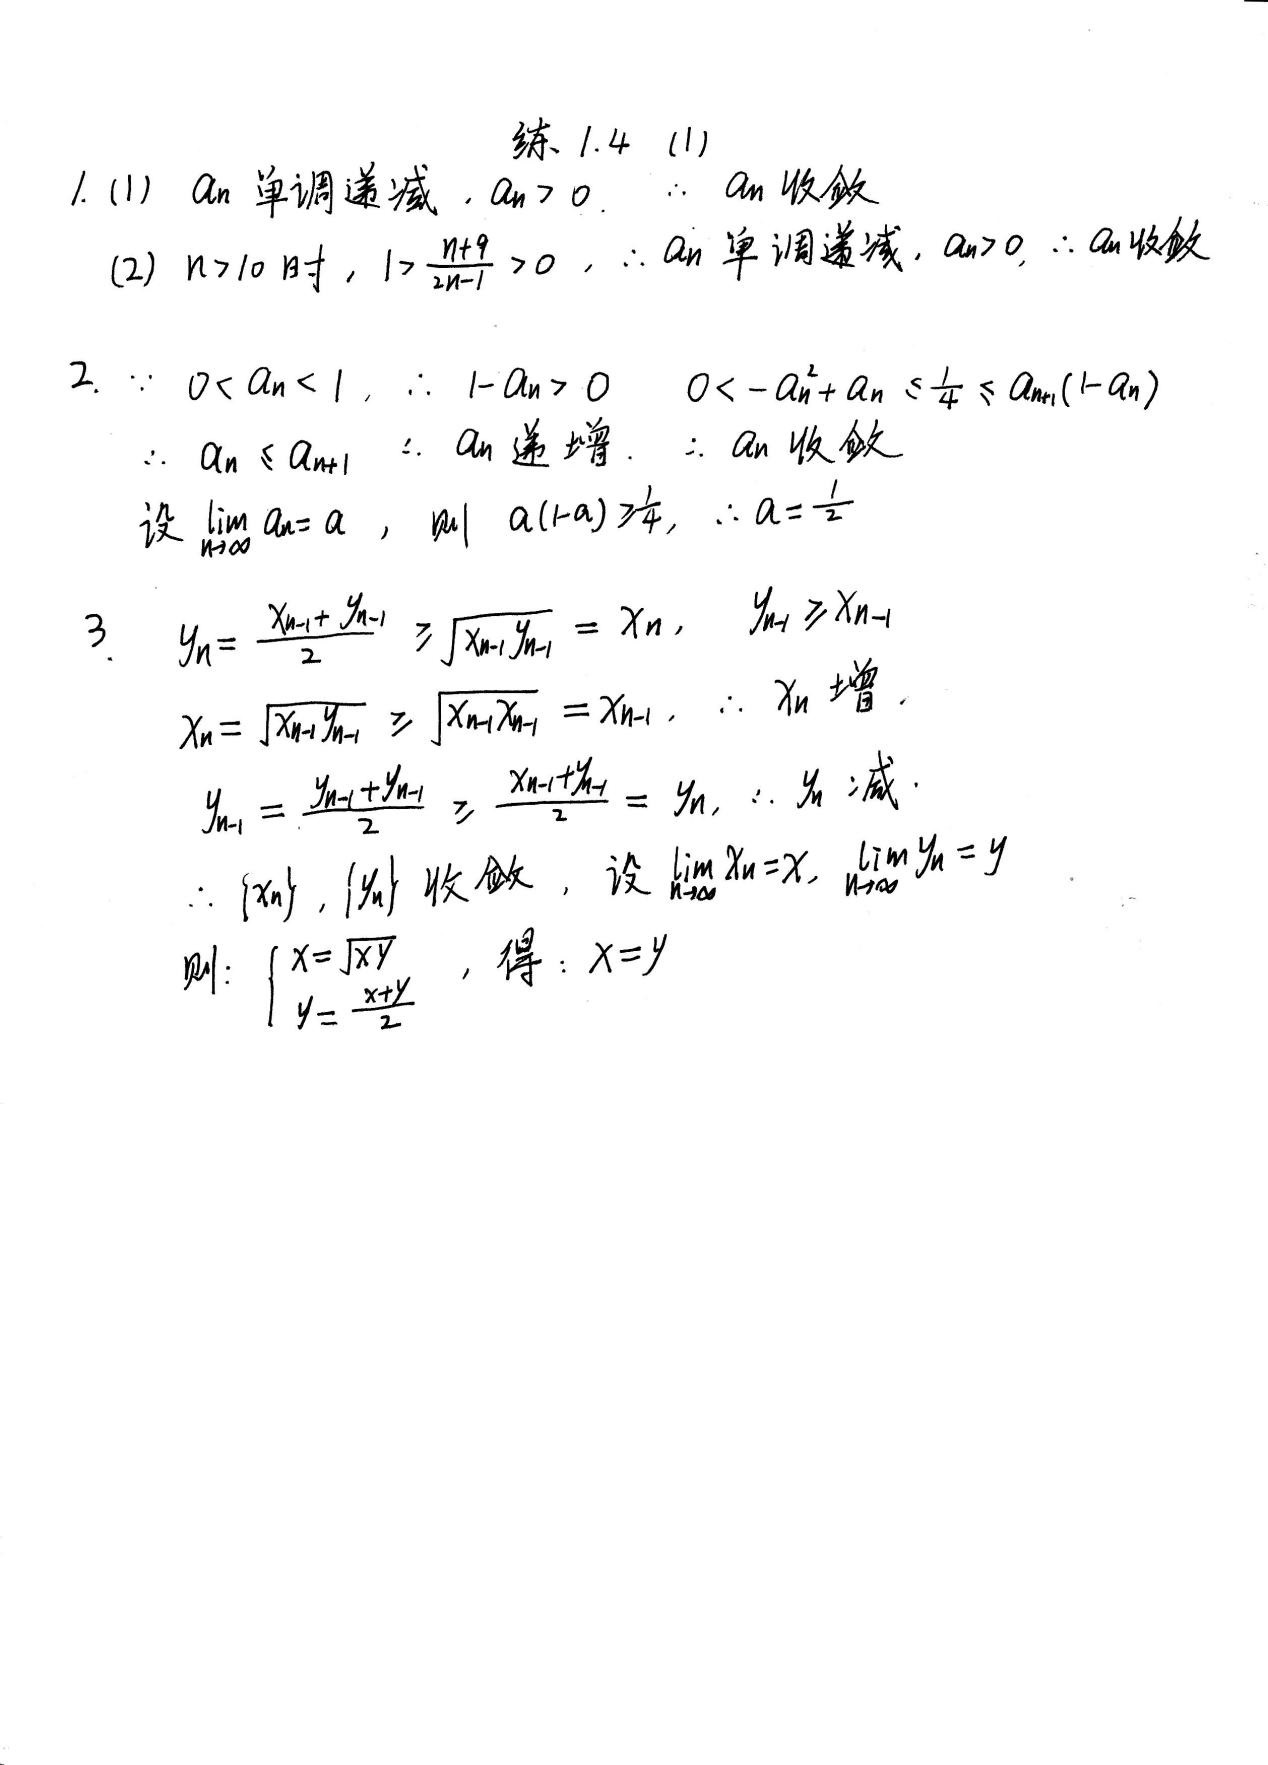 练 1.4 (1)
1. (1) an 单调递减, an > 0. ∴ an 收敛
(2) n > 10 时, 1 > (n+9)/(2n-1) > 0, ∴ an 单调递减, an > 0, ∴ an 收敛
2. ∵ 0 < an < 1, ∴ 1 - an > 0 0 < -an² + an ≤ 1/4 ≤ an+1(1-an)
∴ an ≤ an+1 ∴ an 递增. ∴ an 收敛
设 lim n→∞ an = a, 则 a(1-a) ≥ 1/4, ∴ a = 1/2
3. yn = (xn-1 + yn-1)/2 ≥ √(xn-1 yn-1) = xn, yn-1 ≥ xn-1
xn = √(xn-1 yn-1) ≥ √(xn-1 xn-1) = xn-1, ∴ xn 增.
yn-1 = (yn-1 + yn-1)/2 ≥ (xn-1 + yn-1)/2 = yn, ∴ yn 减.
∴ {xn}, {yn} 收敛, 设 lim n→∞ xn = x, lim n→∞ yn = y
则: { x = √(xy) , 得: x = y
y = (x+y)/2